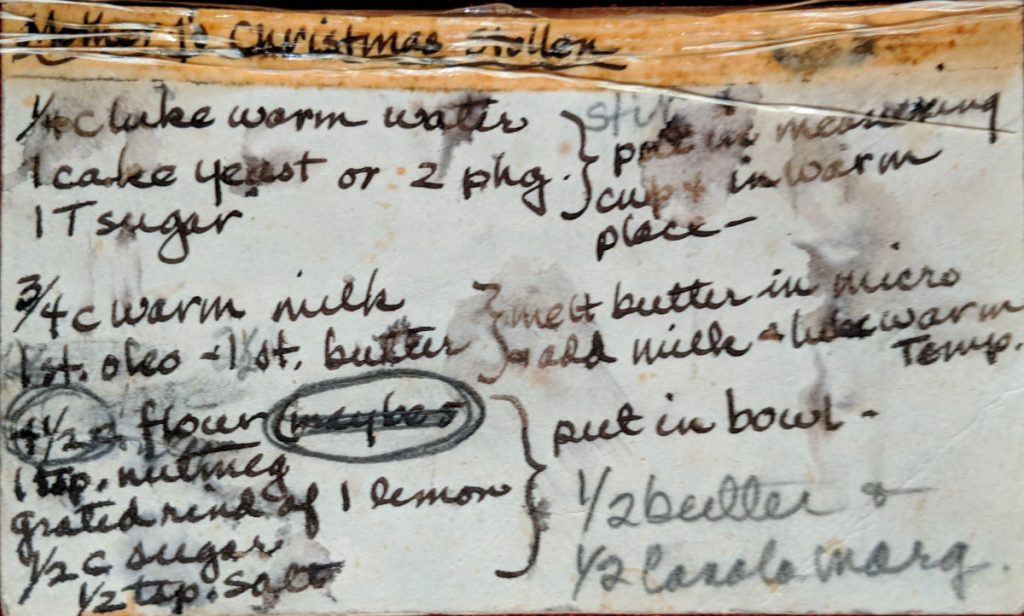 Mother's Christmas Stollen
1/4 c luke warm water
1 cake yeast or 2 pkg.
1 T sugar
stir
put in measuring
cup & in warm
place -
3/4 c warm milk
1 st. oleo - 1 st. butter
melt butter in micro
add milk - luke warm
Temp.
4 1/2 c. flour (maybe 5
1 tsp. nutmeg
grated rind of 1 lemon
1/2 c sugar
1/2 tsp. Salt
put in bowl -
1/2 butter &
1/2 Canola marg.